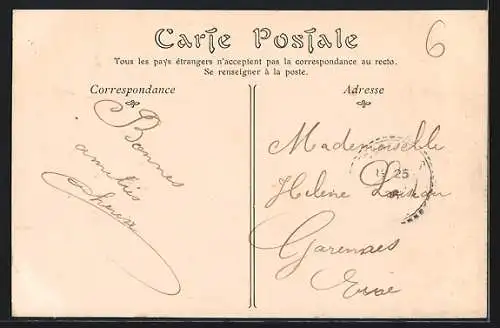 Carte Postale
Tous les pays étrangers n'acceptent pas la correspondance au recto.
Se renseigner à la poste.
Correspondance
Adresse
6
Bonnes
amitiés
Mademoiselle
Helene
15 25
Garennes
Eure